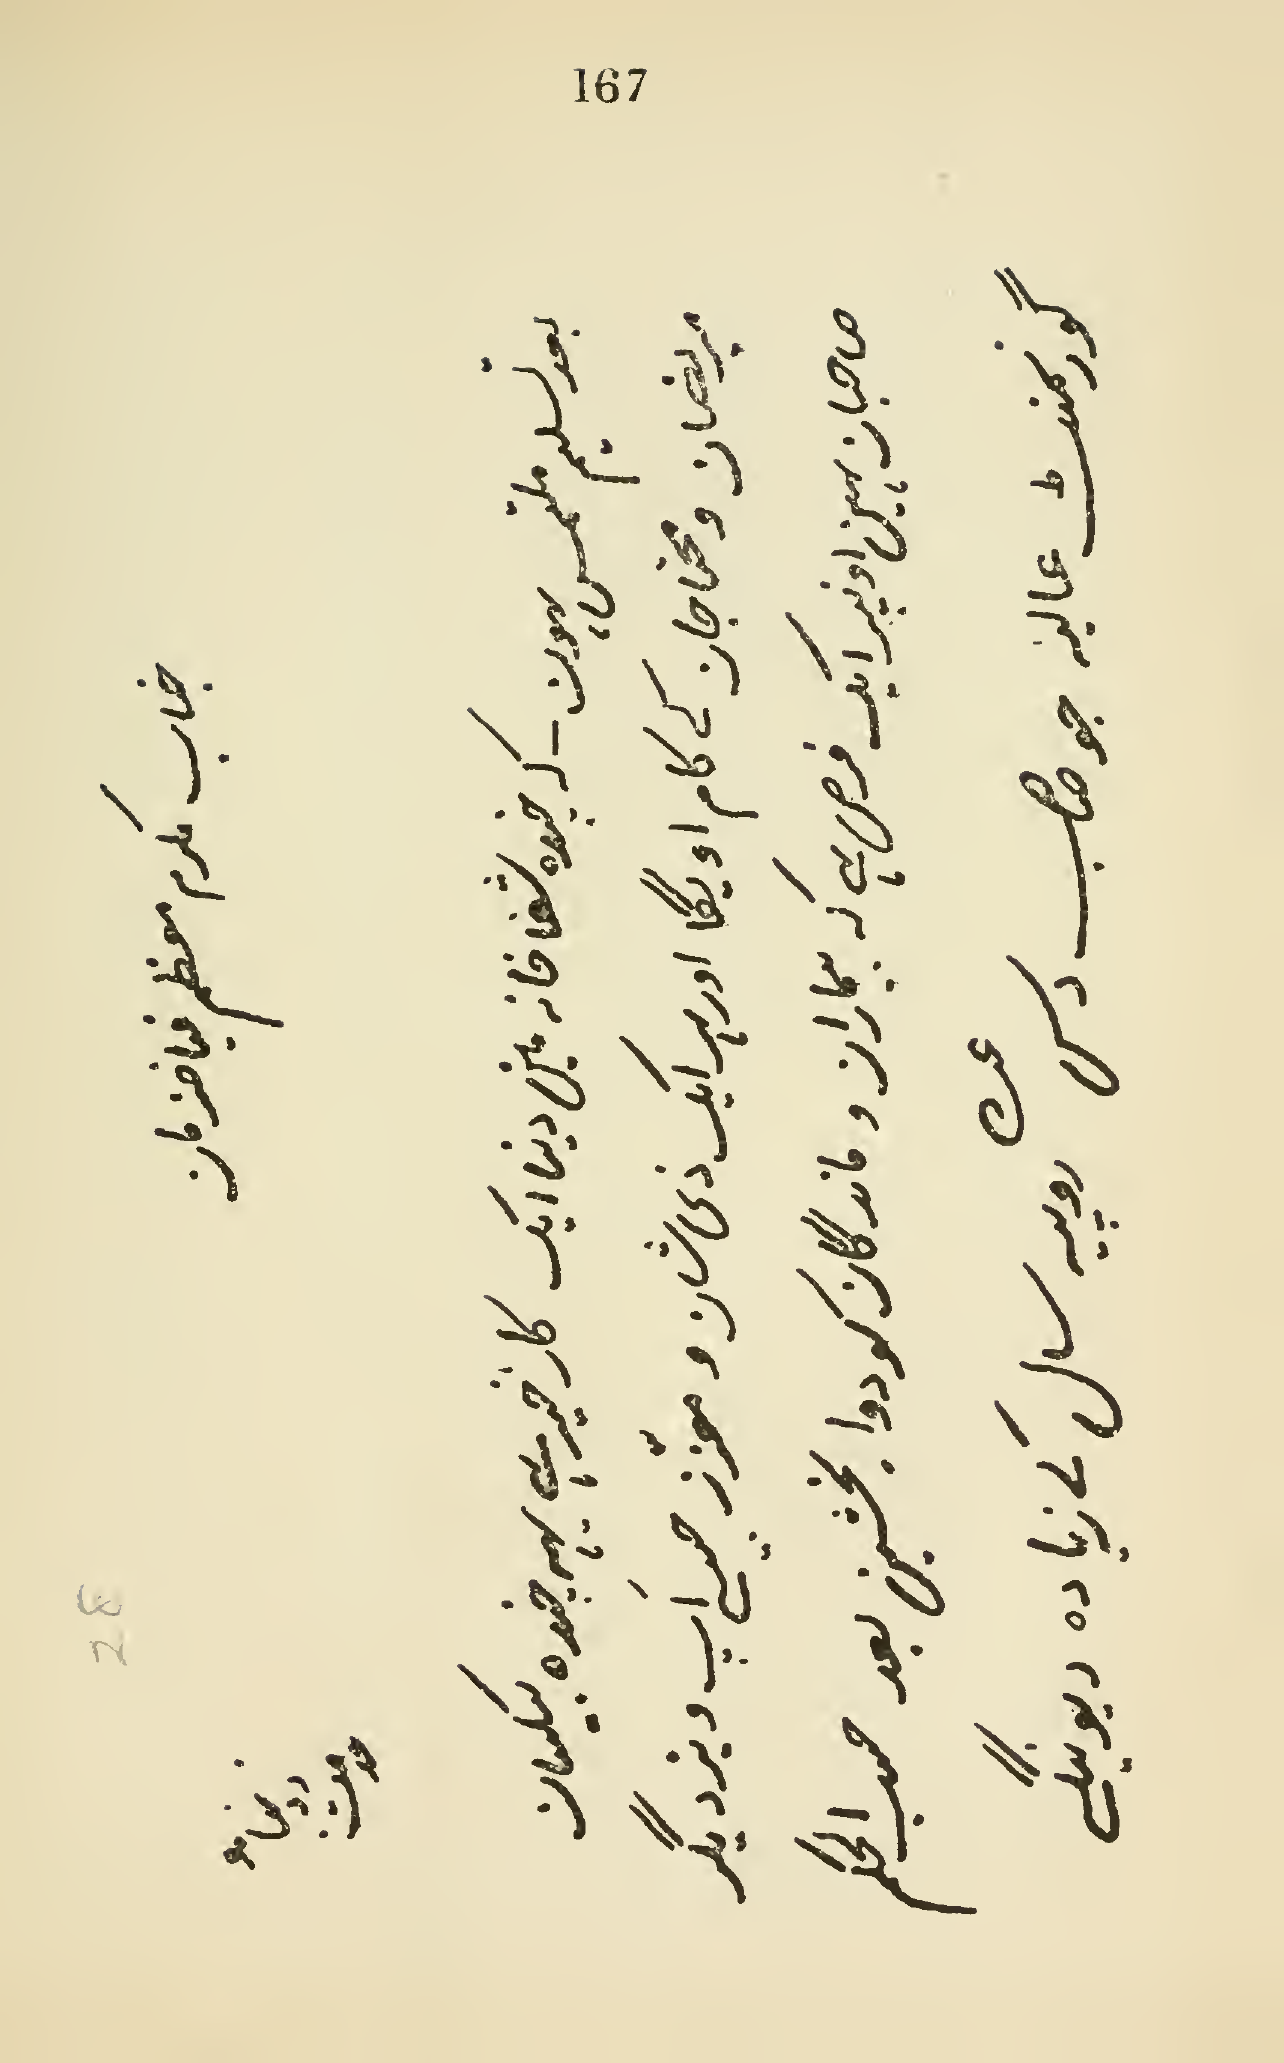 167
جناب مکرم معظم فیاض زمان
بعد تسلیم ملتمس ہون - کہ چندہ شفاخانہ مین دینا ایک کار خیر ہے یہہ چندہ بیکسان
مریضان و محتاجان کے کام آویگا اور ہر ایک ذی شان و معزّز جیسے آپ و نیز دیگر
صاحبان ہین اونپر ایک فرض ہے کہ بیماران و ماندگان کو دوا بخشین بعد حسب الحکم
گورنمنٹ عالیہ جو صاحب دس روپیہ سال کے زیادہ دیوینگے